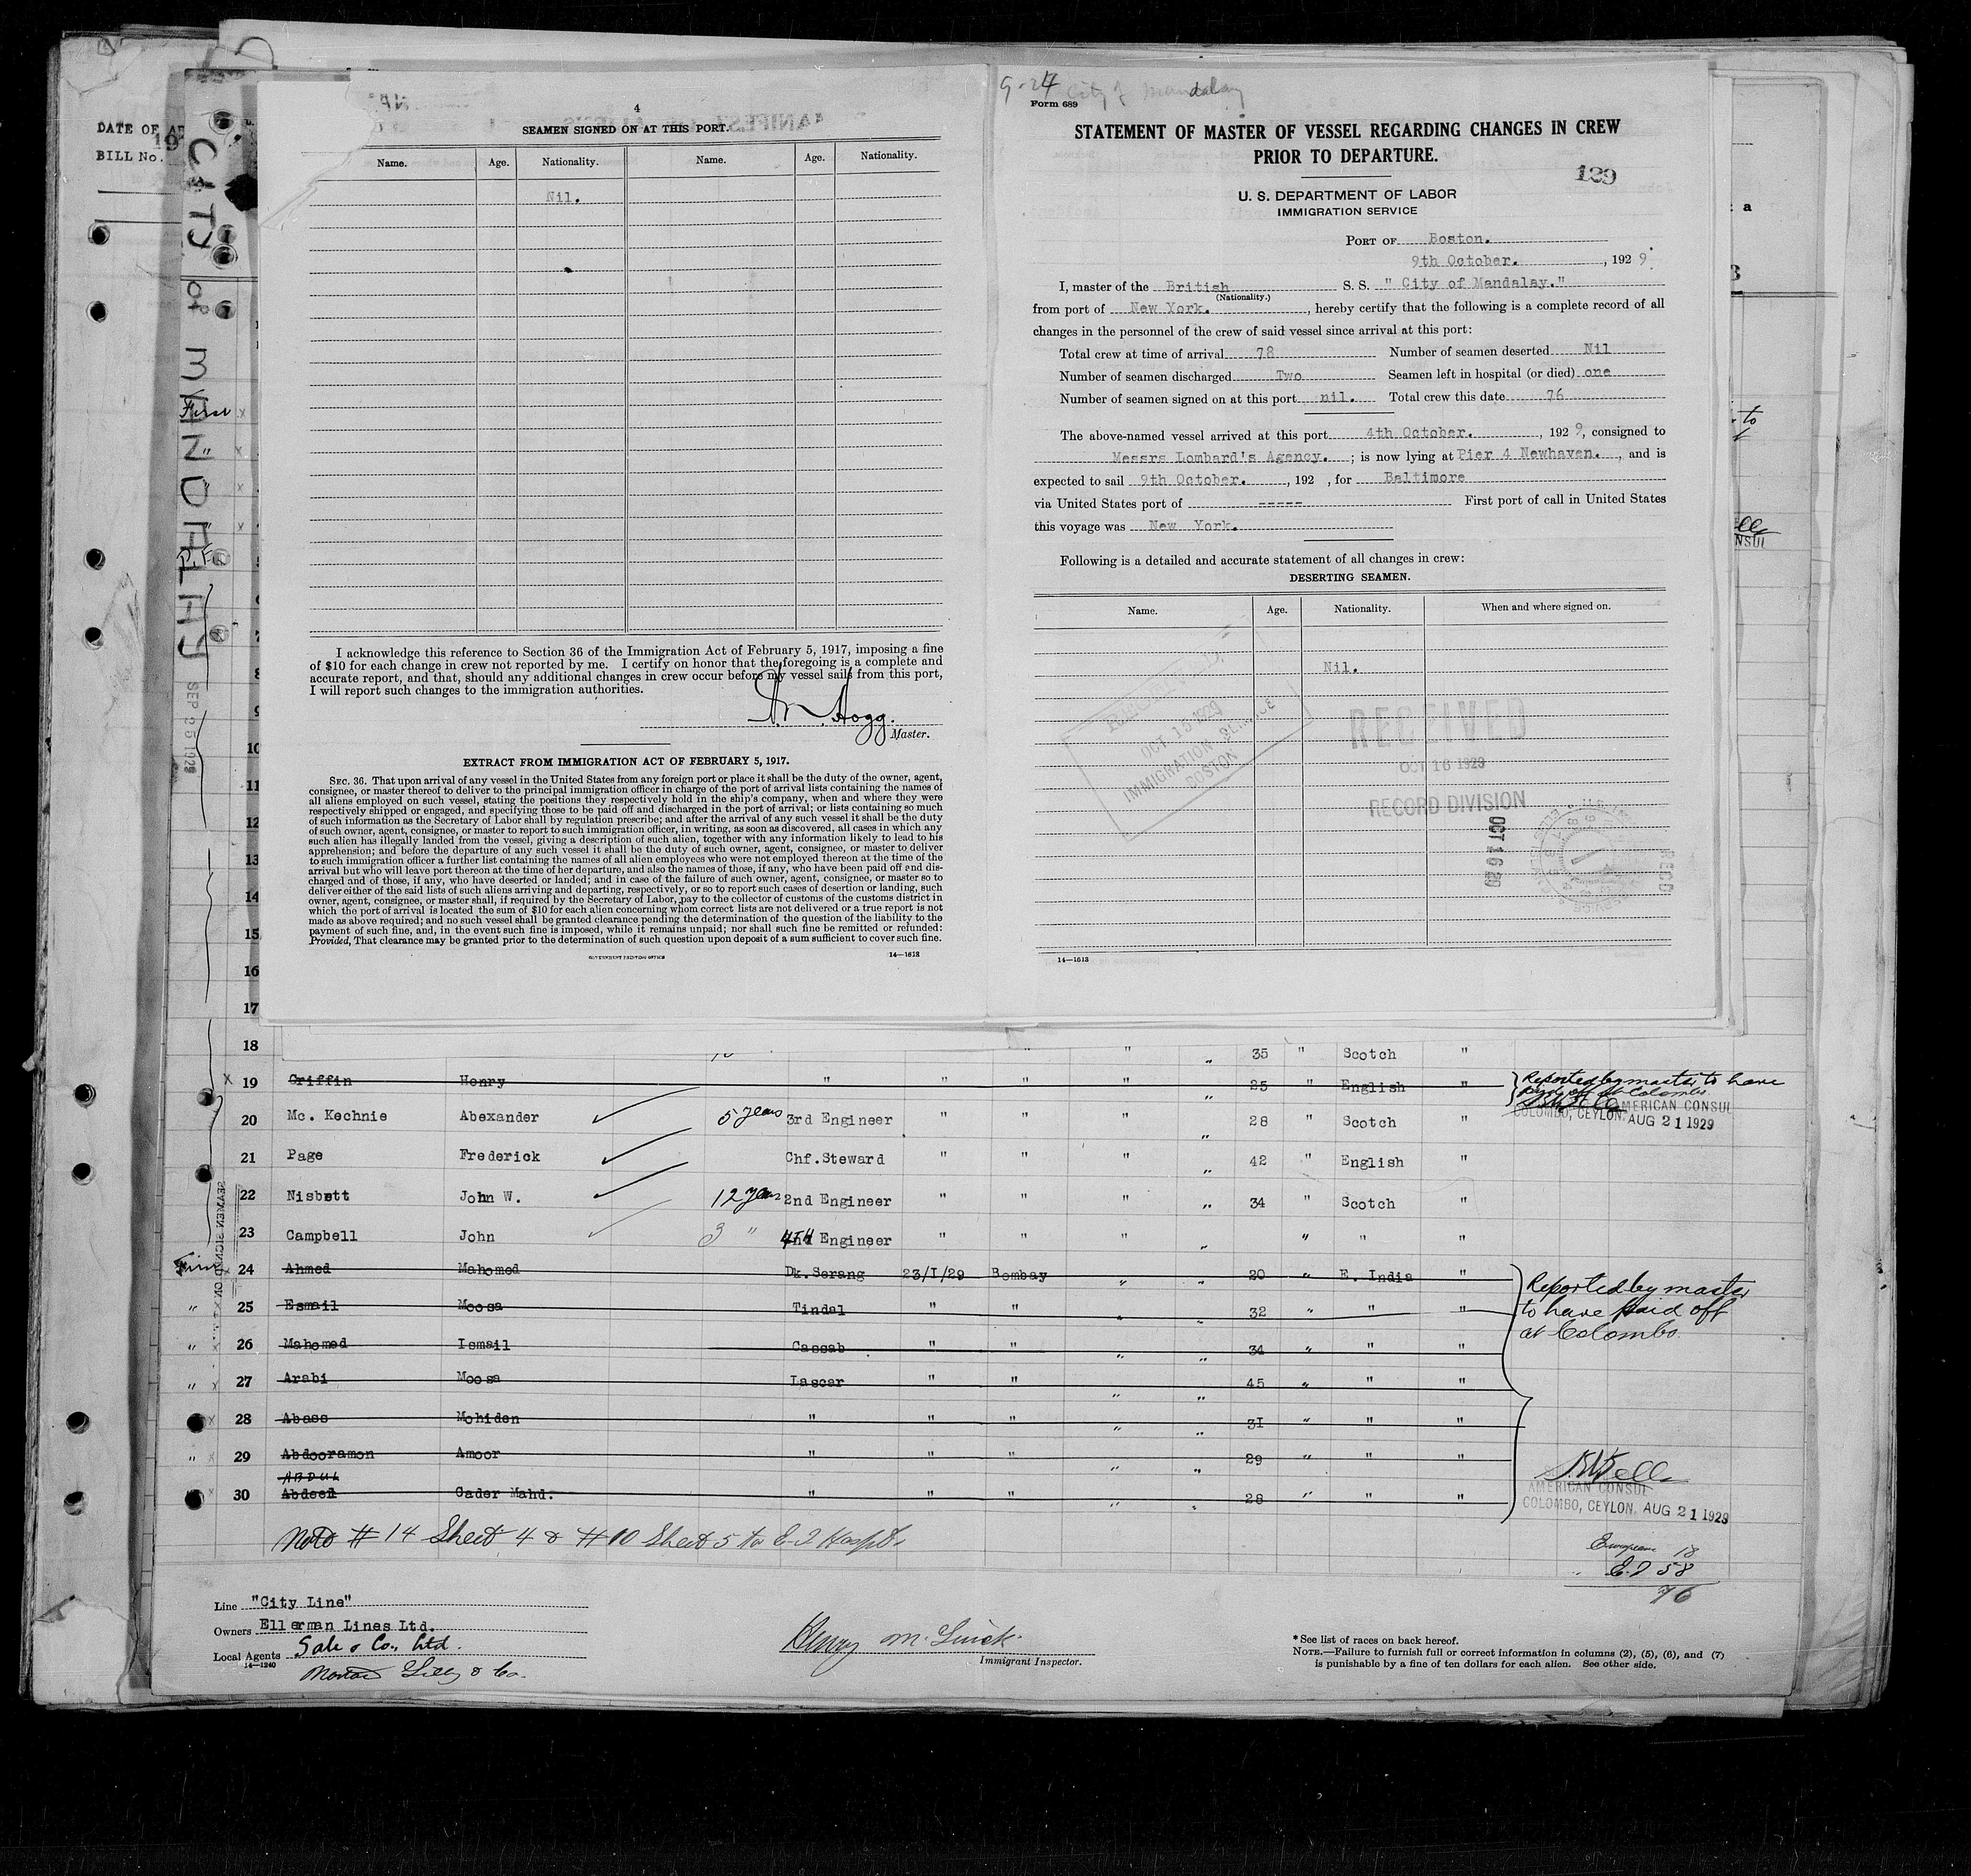 DATE OF AR
19
BILL No.
CITY OF MANDALAY
SEP 25 1929
4
SEAMEN SIGNED ON AT THIS PORT.
Name. Age. Nationality. Name. Age. Nationality.
Nil.
I acknowledge this reference to Section 36 of the Immigration Act of February 5, 1917, imposing a fine
of $10 for each change in crew not reported by me. I certify on honor that the foregoing is a complete and
accurate report, and that, should any additional changes in crew occur before my vessel sails from this port,
I will report such changes to the immigration authorities.
Hogg.
Master.
EXTRACT FROM IMMIGRATION ACT OF FEBRUARY 5, 1917.
SEC. 36. That upon arrival of any vessel in the United States from any foreign port or place it shall be the duty of the owner, agent,
consignee, or master thereof to deliver to the principal immigration officer in charge of the port of arrival lists containing the names of
all aliens employed on such vessel, stating the positions they respectively hold in the ship's company, when and where they were
respectively shipped or engaged, and specifying those to be paid off and discharged in the port of arrival; or lists containing so much
of such information as the Secretary of Labor shall by regulation prescribe; and after the arrival of any such vessel it shall be the duty
of such owner, agent, consignee, or master to report to such immigration officer, in writing, as soon as discovered, all cases in which any
such alien has illegally landed from the vessel, giving a description of such alien, together with any information likely to lead to his
apprehension; and before the departure of any such vessel it shall be the duty of such owner, agent, consignee, or master to deliver
to such immigration officer a further list containing the names of all alien employees who were not employed thereon at the time of the
arrival but who will leave port thereon at the time of her departure, and also the names of those, if any, who have been paid off and dis-
charged and of those, if any, who have deserted or landed; and in case of the failure of such owner, agent, consignee, or master so to
deliver either of the said lists of such aliens arriving and departing, respectively, or so to report such cases of desertion or landing, such
owner, agent, consignee, or master shall, if required by the Secretary of Labor, pay to the collector of customs of the customs district in
which the port of arrival is located the sum of $10 for each alien concerning whom correct lists are not delivered or a true report is not
made as above required; and no such vessel shall be granted clearance pending the determination of the question of the liability to the
payment of such fine, and, in the event such fine is imposed, while it remains unpaid; nor shall such fine be remitted or refunded:
Provided, That clearance may be granted prior to the determination of such question upon deposit of a sum sufficient to cover such fine.
GOVERNMENT PRINTING OFFICE 14—1613
9-24 City of Mandalay
Form 689
STATEMENT OF MASTER OF VESSEL REGARDING CHANGES IN CREW
PRIOR TO DEPARTURE.
129
U. S. DEPARTMENT OF LABOR
IMMIGRATION SERVICE
PORT OF Boston.
9th October. , 1929.
I, master of the British S. S. " City of Mandalay."
(Nationality.)
from port of New York. , hereby certify that the following is a complete record of all
changes in the personnel of the crew of said vessel since arrival at this port:
Total crew at time of arrival 78 Number of seamen deserted Nil
Number of seamen discharged Two Seamen left in hospital (or died) one
Number of seamen signed on at this port nil. Total crew this date 76
The above-named vessel arrived at this port 4th October. , 1929, consigned to
Messrs Lombard's Agency. ; is now lying at Pier 4 Newhaven. , and is
expected to sail 9th October. , 192 , for Baltimore
via United States port of ----- First port of call in United States
this voyage was New York.
Following is a detailed and accurate statement of all changes in crew:
DESERTING SEAMEN.
Name. Age. Nationality. When and where signed on.
Nil.
RECEIVED
OCT 15 1929
IMMIGRATION SERVICE
BOSTON
RECEIVED
OCT 16 1929
RECORD DIVISION
OCT 16 29
RECD
14—1613
First
10
11
12
13
14
15
16
17
18 35 " Scotch "
19 Griffin Henry " " " " " 25 " English " Reported by master to have
paid off at Colombo.
AMERICAN CONSUL
COLOMBO, CEYLON. AUG 21 1929
20 Mc. Kechnie Abexander 5 years 3rd Engineer " " " " 28 " Scotch "
21 Page Frederick Chf. Steward " " " " 42 " English "
22 Nisbett John W. 12 years 2nd Engineer " " " " 34 " Scotch "
23 Campbell John 3 " 4TH Engineer " " " " " " "
24 Ahmed Mahomed Dk. Serang 23/I/29 Bombay " " 20 " E. India "
25 Esmail Moosa Tindal " " " " 32 " " "
26 Mahomed Ismail Cassab " " " " 34 " " "
27 Arabi Moosa Lascar " " " " 45 " " "
28 Abass Mohiden " " " " " 31 " " "
29 Abdooramon Amoor " " " " " 29 " " "
ABDUL
30 Abdeel Cader Mahd. " " " " " 28 " " "
Reported by master
to have paid off
at Colombo.
AMERICAN CONSUL
COLOMBO, CEYLON, AUG 21 1929
Note #14 Sheet 4 & #10 Sheet 5 to E-I Hospt.
European 18
E.I 58
76
Line "City Line"
Owners Ellerman Lines Ltd.
Local Agents Gale & Co., Ltd.
14—1240
Norton Lilly & Co.
Immigrant Inspector.
* See list of races on back hereof.
NOTE.—Failure to furnish full or correct information in columns (2), (5), (6), and (7)
is punishable by a fine of ten dollars for each alien. See other side.